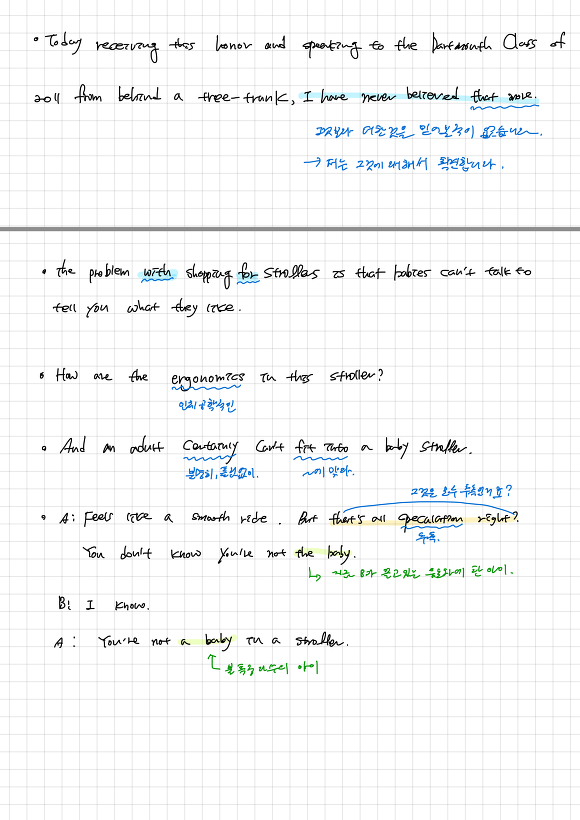 • Today receiving this honor and speaking to the Dartmouth Class of
2011 from behind a tree-trunk, I have never believed that more.
그것보다 더한 것을 믿어본적이 없습니다.
→ 저는 그것에 대해서 확신합니다.
• The problem with shopping for strollers is that babies can't talk to
tell you what they like.
• How are the ergonomics in this stroller?
인체공학적인
• And an adult certainly can't fit into a baby stroller.
분명히, 틀림없이. ~에 맞아.
그것은 모두 추측이에요?
• A: Feels like a smooth ride. But that's all speculation right?
추측.
You don't know you're not the baby.
↳ 지금 B가 끌고있는 유모차에 탄 아이.
B: I know.
A: You're not a baby in a stroller.
불특정 다수의 아이